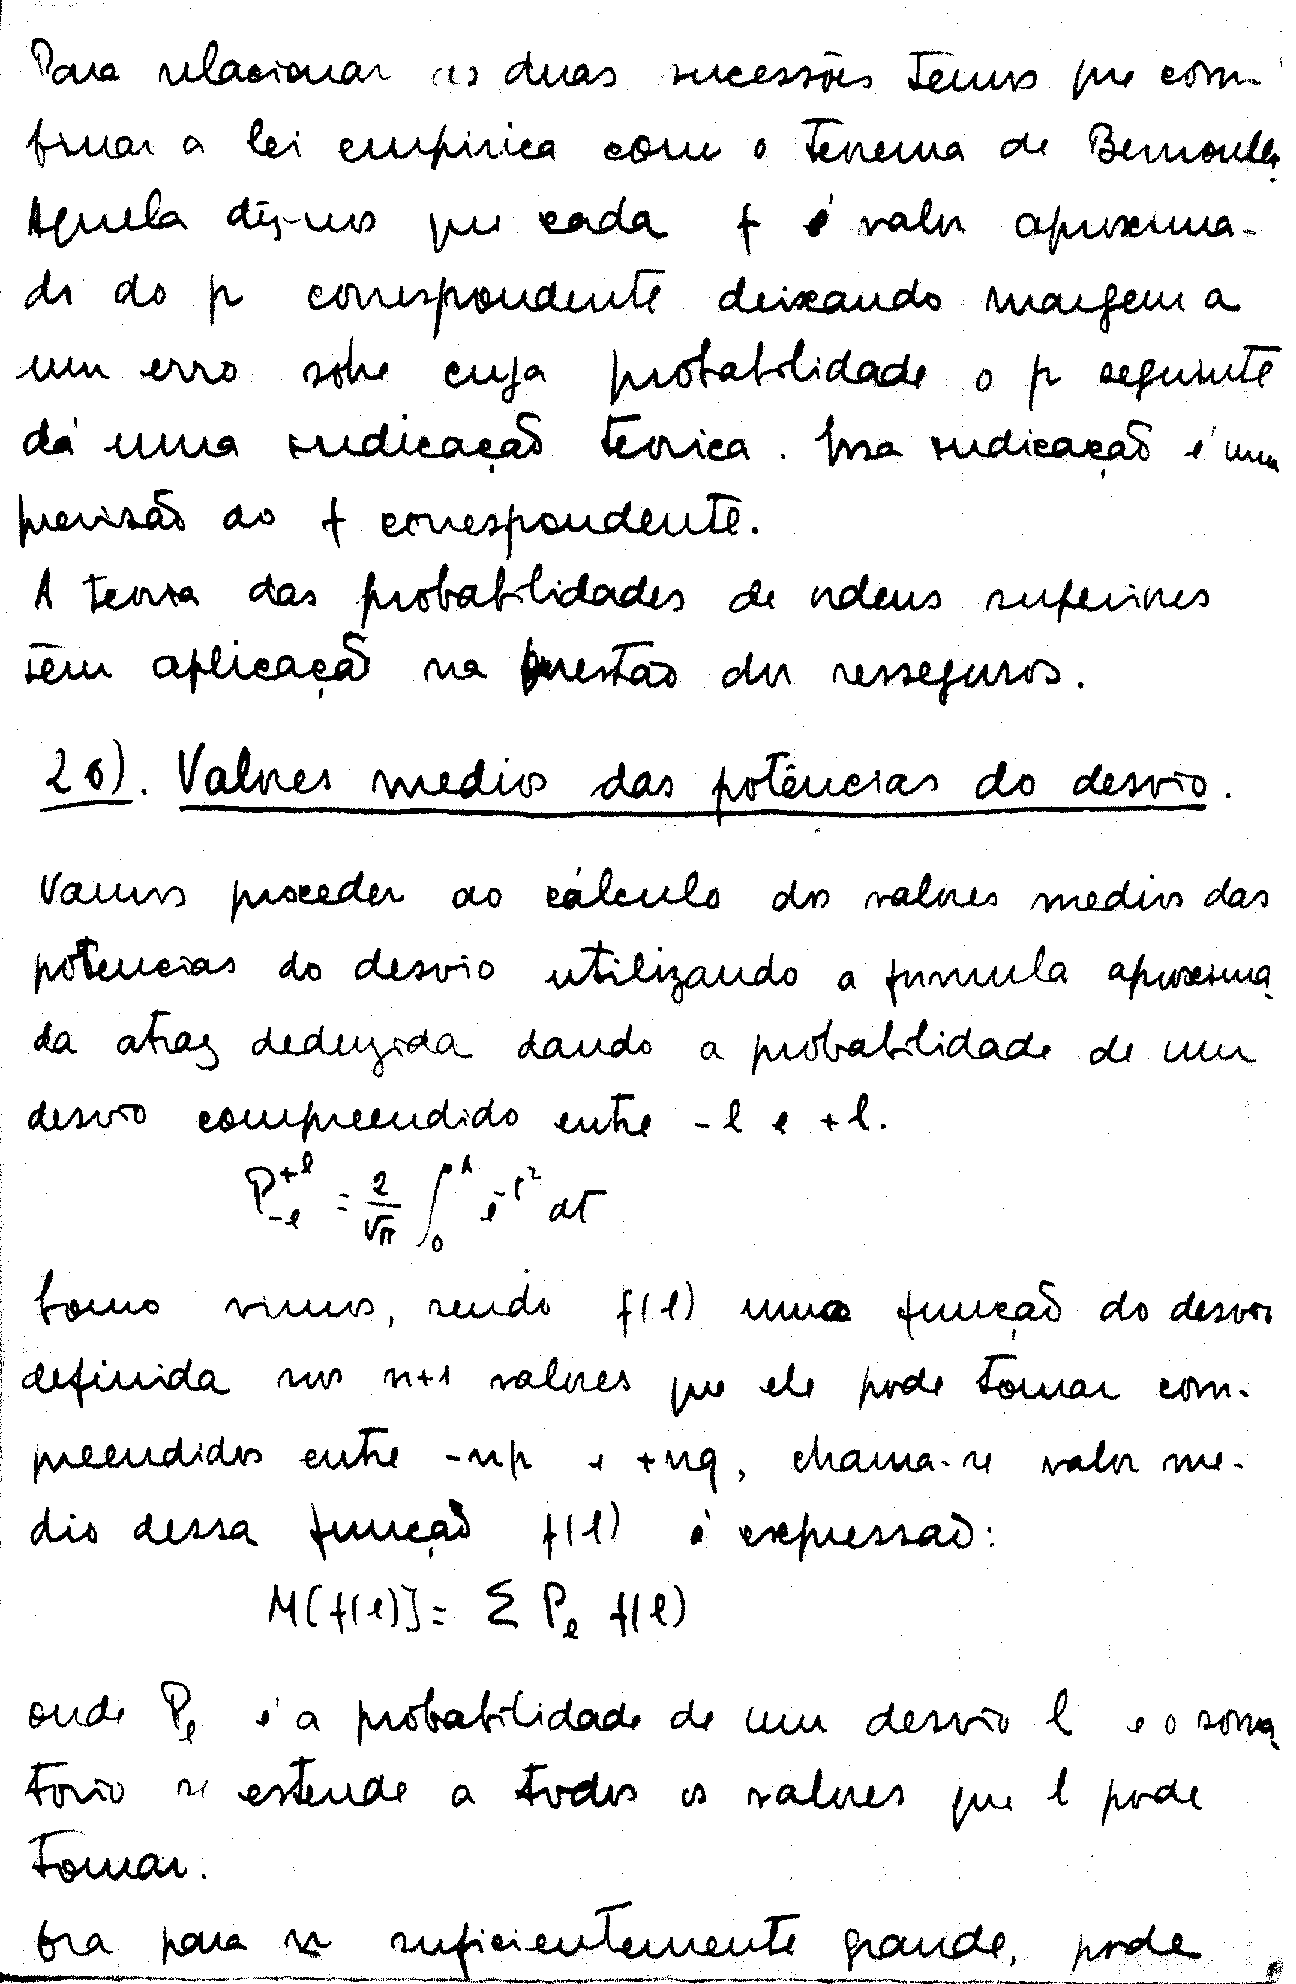 Para relacionar as duas sucessões temos que com-
binar a lei empirica com o teorema de Bernoulli.
Aquela diz-nos que cada f é valor aproxima-
do do p correspondente deixando margem a
um erro sobre cuja probabilidade o p seguinte
dá uma indicação teorica. Essa indicação é uma
previsão do f correspondente.
A teoria das probabilidades de ordens superiores
têm aplicação na questão dos resseguros.
20). Valores medios das potências do desvio.
Vamos proceder ao cálculo dos valores medios das
potencias do desvio utilizando a formula aproxima
da atraz deduzida dando a probabilidade de um
desvio compreendido entre -l e +l.
P_{-l}^{+l} = \frac{2}{\sqrt{\pi}} \int_0^λ e^{-t^2} dt
Como vimos, sendo f(l) uma função do desvio
definida nos n+1 valores que ele pode tomar com-
preendidos entre -np e +nq, chama-se valor me-
dio dessa função f(l) é expressão:
M[f(l)] = Σ P_l f(l)
onde P_l é a probabilidade de um desvio l e o soma
torio se estende a todos os valores que l pode
tomar.
Ora para n suficientemente grande, pode